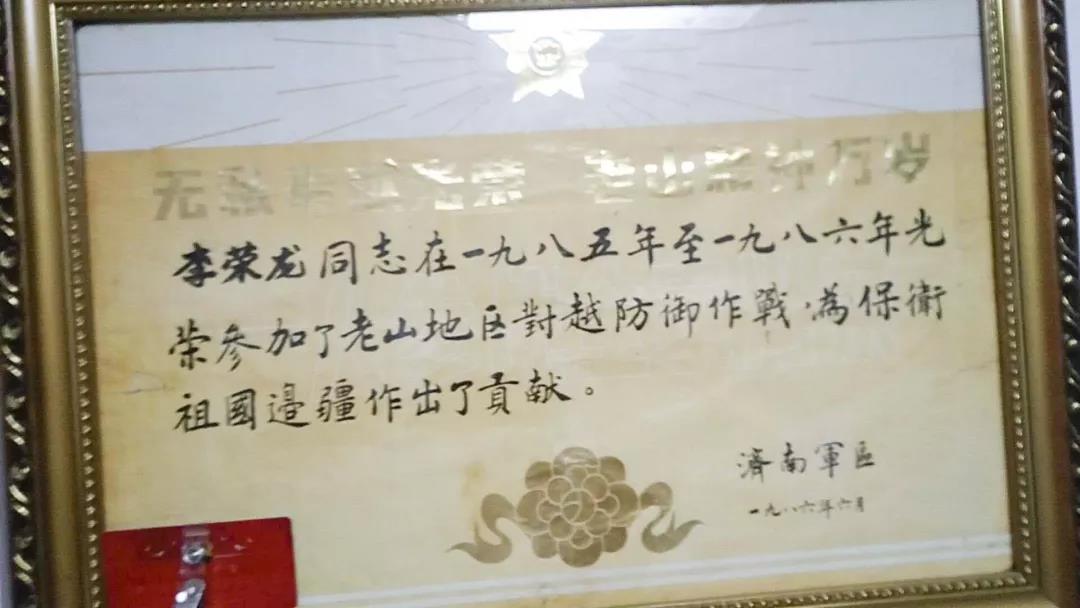 无私奉献光荣 老山精神万岁
李荣龙同志在一九八五年至一九八六年光
荣參加了老山地区對越防御作戰，為保衛
祖國邊疆作出了貢献。
濟南軍區
一九八六年六月